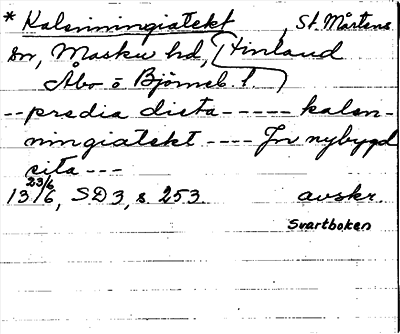 * Kalsniningiatekt, St. Mårtens
sn, Masku hd, Finland
Åbo o Björneb. l.
-- predia dicta ----- kalsn-
ningiatekt ---- Jn nybygd
sita ---
13 23/6 6, SD 3, s. 253. avskr.
Svartboken